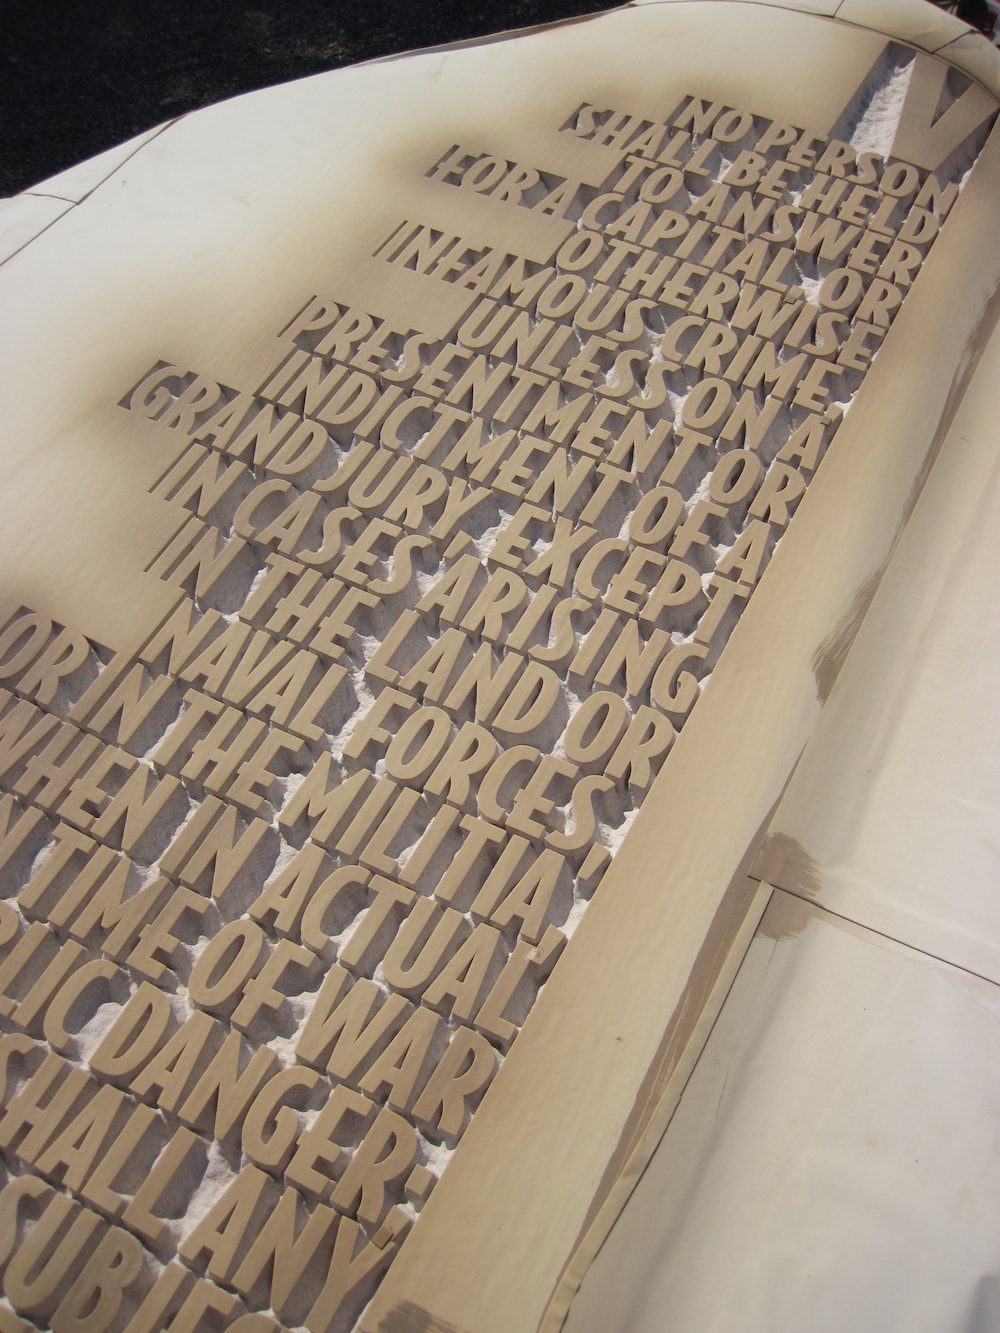 V
NO PERSON
SHALL BE HELD
TO ANSWER
FOR A CAPITAL, OR
OTHERWISE
INFAMOUS CRIME,
UNLESS ON A
PRESENTMENT OR
INDICTMENT OF A
GRAND JURY, EXCEPT
IN CASES ARISING
IN THE LAND OR
NAVAL FORCES,
OR IN THE MILITIA,
WHEN IN ACTUAL
N TIME OF WAR
LIC DANGER;
SHALL ANY
SUBJEC